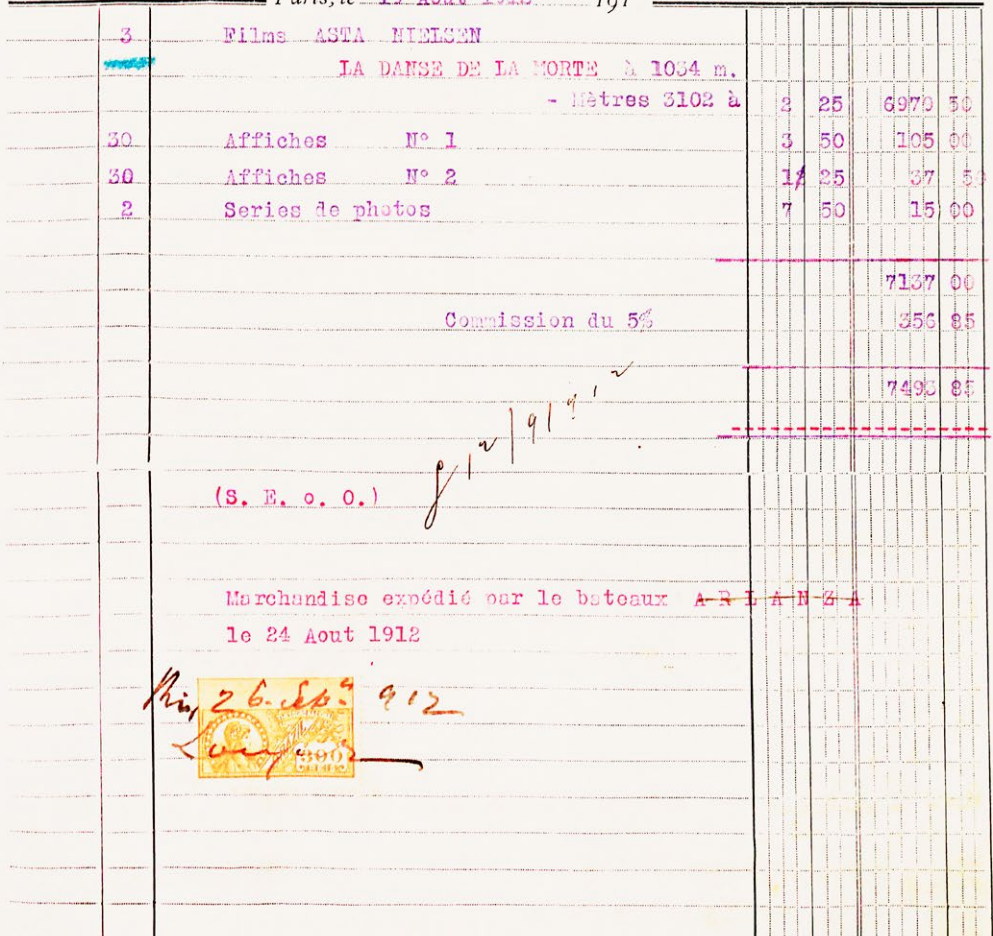 Paris, le Aout 191
3 Films ASTA NIELSEN
LA DANSE DE LA MORTE à 1034 m.
- Mètres 3102 à 2 25 6970 50
30 Affiches N° 1 3 50 105 00
30 Affiches N° 2 1 25 37 50
2 Series de photos 7 50 15 00
7137 00
Commission du 5% 356 85
7493 85
(S. E. o. O.)
Marchandise expédié par le bateaux ARLANZA
le 24 Aout 1912
Rio, 26. Sepº 912
300